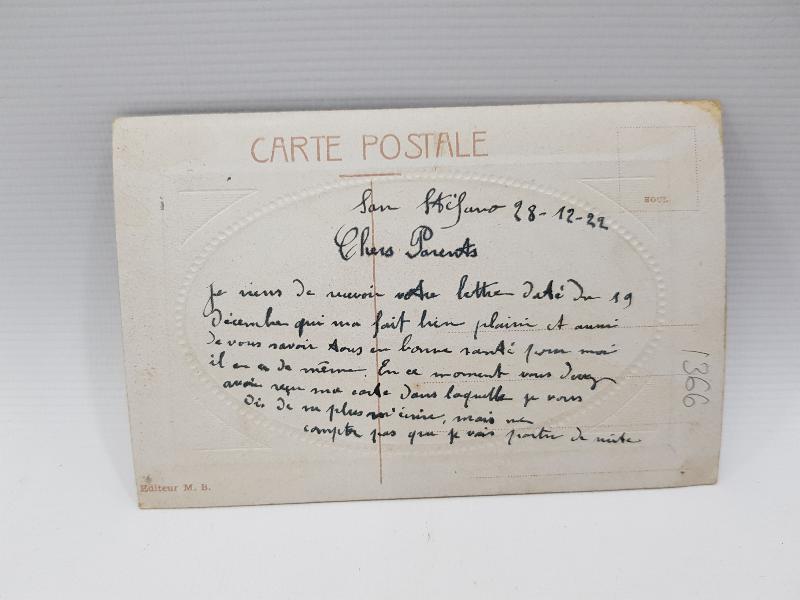 CARTE POSTALE
San Stéfano 28-12-22
Chers Parents
je viens de recevoir votre lettre daté du 19
décembre qui ma fait bien plaisir et aussi
de vous savoir tous en bonne santé pour moi
il en es de même. En ce moment vous devez
avoir reçu ma carte dans laquelle je vous
dis de ne plus m'écrire, mais ne
compte pas que je vais partir de suite
1366
Editeur M. B.